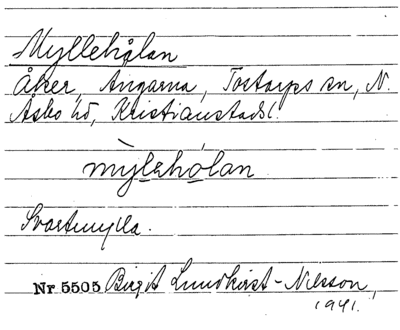 Myllehålan
Åker, Ängarna, Tostarps sn, N.
Åsbo hd, Kristianstads l.
mỳlehólan
Svartmylla.
Nr 5505 Birgit Lundkvist-Nilsson,
1941.